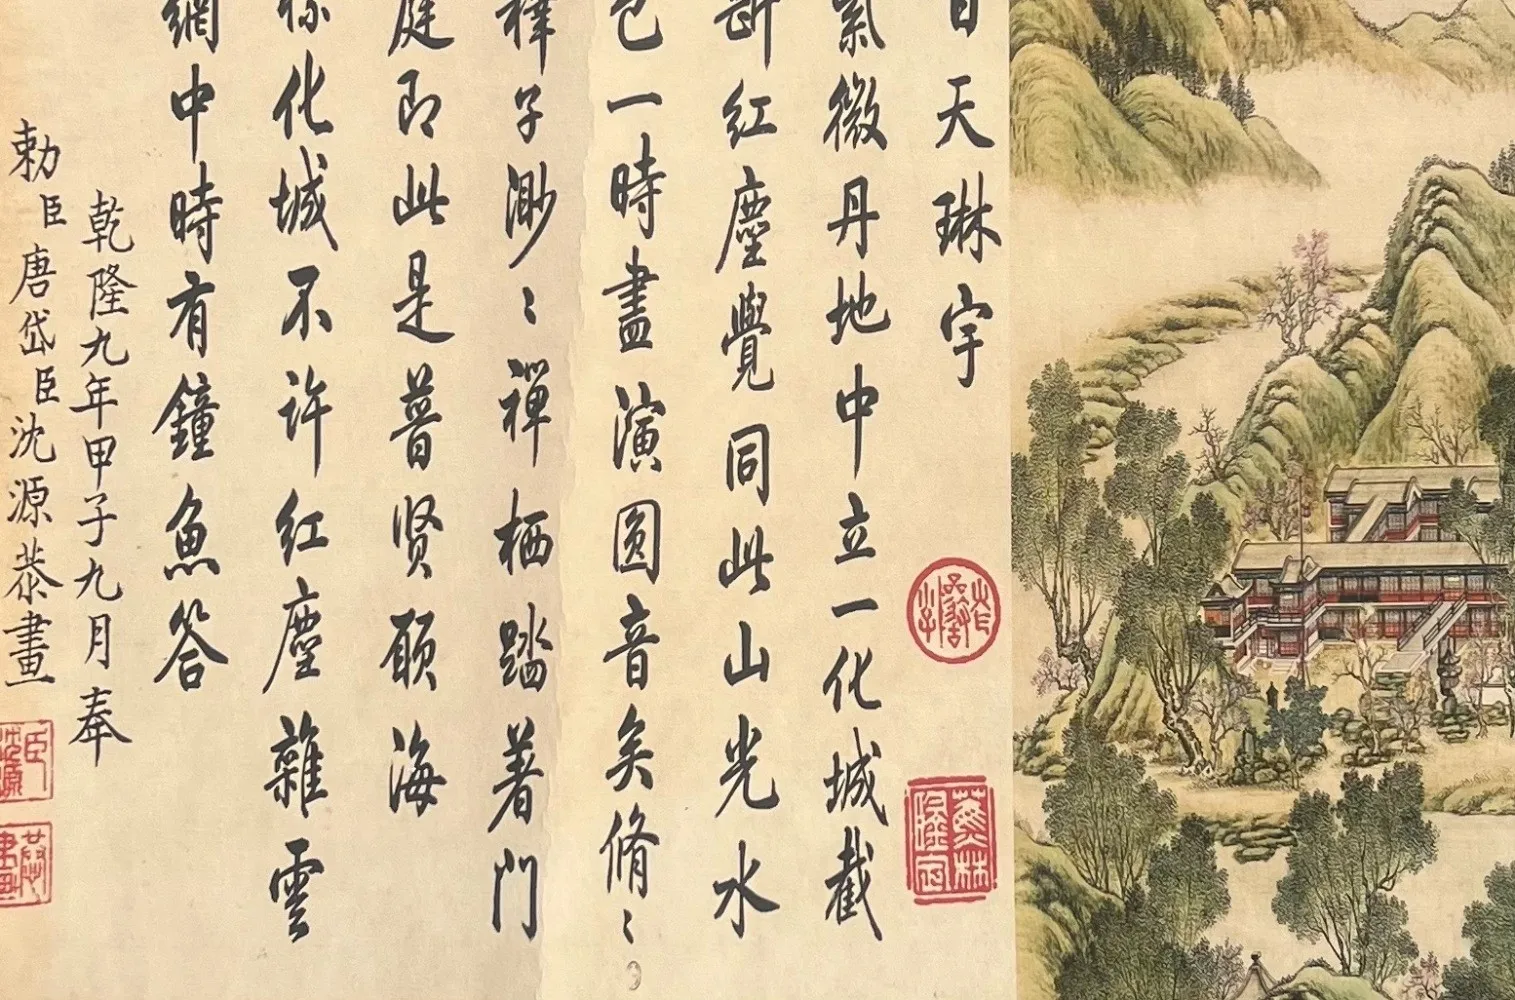 日天琳宇
紫微丹地中立一化城截
斷红塵覺同此山光水
色一時盡演圆音矣脩〻
釋子渺〻禪栖踏著門
庭即此是普贤願海
化城不许红塵雜雲
網中時有鐘魚答
乾隆九年甲子九月奉
勅臣唐岱臣沈源恭畫